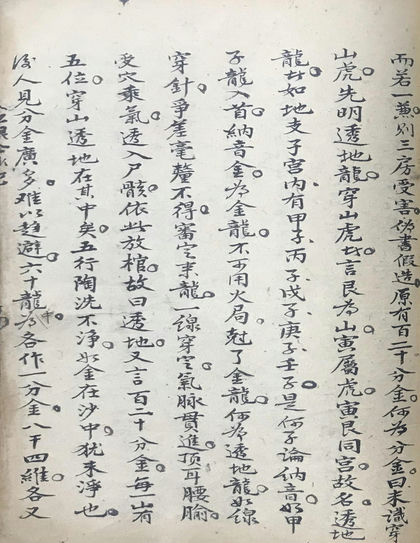 而若一兼則三房受害偽書假造原有百二十分金何為分金曰未識穿
山虎先明透地龍穿山虎此言艮為山寅屬虎寅艮同宮故名透地
龍此如地支子宮內有甲子丙子戊子庚子壬子是何子論納音如甲
子龍入首納音金為金龍不可用火局尅了金龍何為透地龍如線
穿針爭差毫釐不得審定來龍一線穿定氣脉貫進頂耳腰腧
受穴乘氣透入尸骸依此放棺故曰透地又言百二十分金每一山有
五位穿山透地在其中矣五行陶洗不净如金在沙中犹未淨也
後人見分金廣多难以趋避六十龍為各作一分金八干四維各又